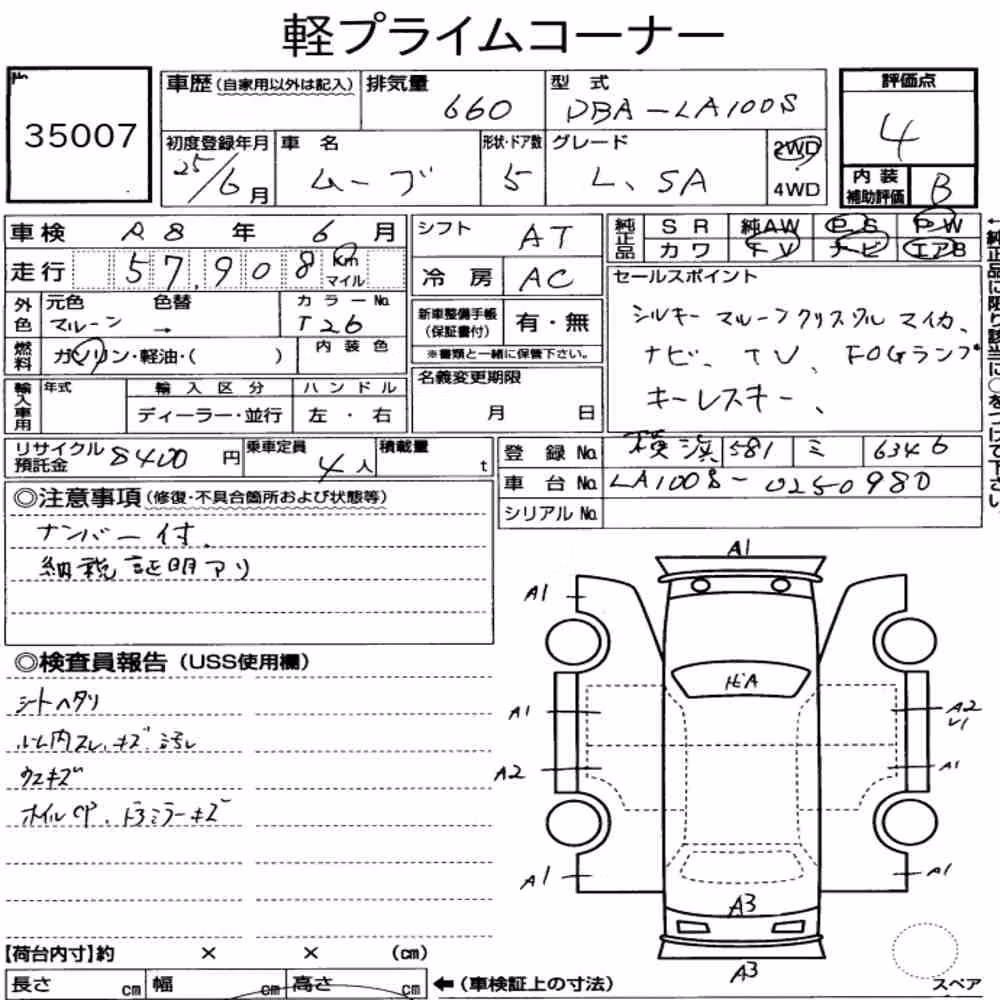 軽プライムコーナー
No. 35007
車歴(自家用以外は記入) 排気量 660 型式 DBA-LA100S 評価点 4
初度登録年月 25/6月 車名 ムーブ 形状・ドア数 5 グレード L、SA 2WD 4WD 内装補助評価 B
車検 R8年 6月 シフト AT 純正品 SR 純AW PS PW
走行 57,908 km マイル 冷房 AC カワ TV ナビ エアB
外色 元色 マルーン 色替 → カラーNo. T26 新車整備手帳(保証書付) 有・無
※書類と一緒に保管下さい。
燃料 ガソリン・軽油・( ) 内装色
セールスポイント
シルキーマルーンクリスタルマイカ、
ナビ、TV、FOGランプ
キーレスキー、
輸入車用 年式 輸入区分 ディーラー・並行 ハンドル 左・右
名義変更期限 月 日
←純正品に限り該当に○をつけて下さい。
リサイクル預託金 8400円 乗車定員 4人 積載量 t
登録No. 横浜 581 ミ 6346
車台No. LA100S-0250980
シリアルNo.
◎注意事項(修復・不具合箇所および状態等)
ナンバー付、
納税証明アリ
◎検査員報告(USS使用欄)
シートヘタリ
ルーム内スレ、キズ、汚レ
ウスキズ
ホイルCP、ドアミラーキズ
A1
A1 A1
A1 A2
A2 A1
A1 A1
A3
A3
【荷台内寸】約 × × (cm)
長さ cm 幅 cm 高さ cm ←(車検証上の寸法)
スペア